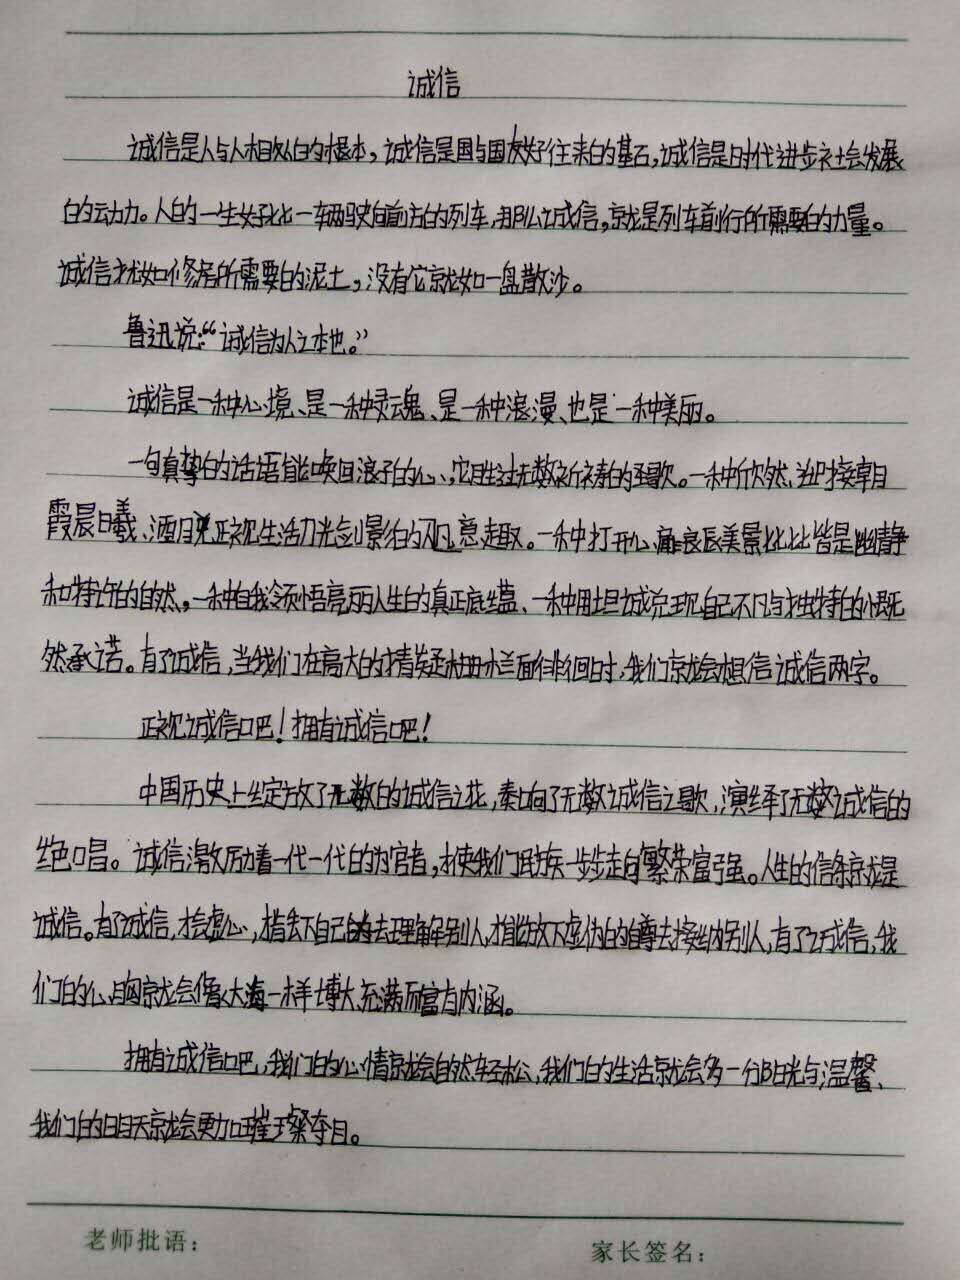 诚信
诚信是人与人相处的根本，诚信是国与国友好往来的基石，诚信是时代进步社会发展
的动力。人的一生好比一车辆驶向前方的列车，那么诚信，就是列车前行所需要的力量。
诚信就如修房所需要的泥土，没有它就如一盘散沙。
鲁迅说：“诚信为人之本也。”
诚信是一种心境、是一种灵魂、是一种浪漫、也是一种美丽。
一句真挚的话语能唤回浪子的心，它胜过无数祈祷的圣歌。一种欣然，迎接皓月
霞晨日曦、洒月正视生活刀光剑影的意趣。一种打开心扉良辰美景比比皆是幽静
和特许的自然，一种自我领悟亮丽人生的真正底蕴、一种用坦诚兑现自己不凡与独特的慨
然承诺。有了诚信，当我们在高大的精英栅栏面徘徊时，我们就会想信诚信两字。
正视诚信吧！拥有诚信吧！
中国历史上绽放了无数的诚信之花，奏响了无数诚信之歌，演绎了无数诚信的
绝唱。诚信激励着一代一代的为官者，才使我们民族一步步走向繁荣富强。人生的信条就是
诚信。有了诚信，才会虚心，才丢下自己的去理解别人，才能放下虚伪的自尊去接纳别人，有了诚信，我
们的心胸就会像大海一样博大充满而富有内涵。
拥有诚信吧，我们的心情就会自然轻松、我们的生活就会多一份阳光与温馨、
我们的明天就会更加璀璨夺目。
老师批语：
家长签名：